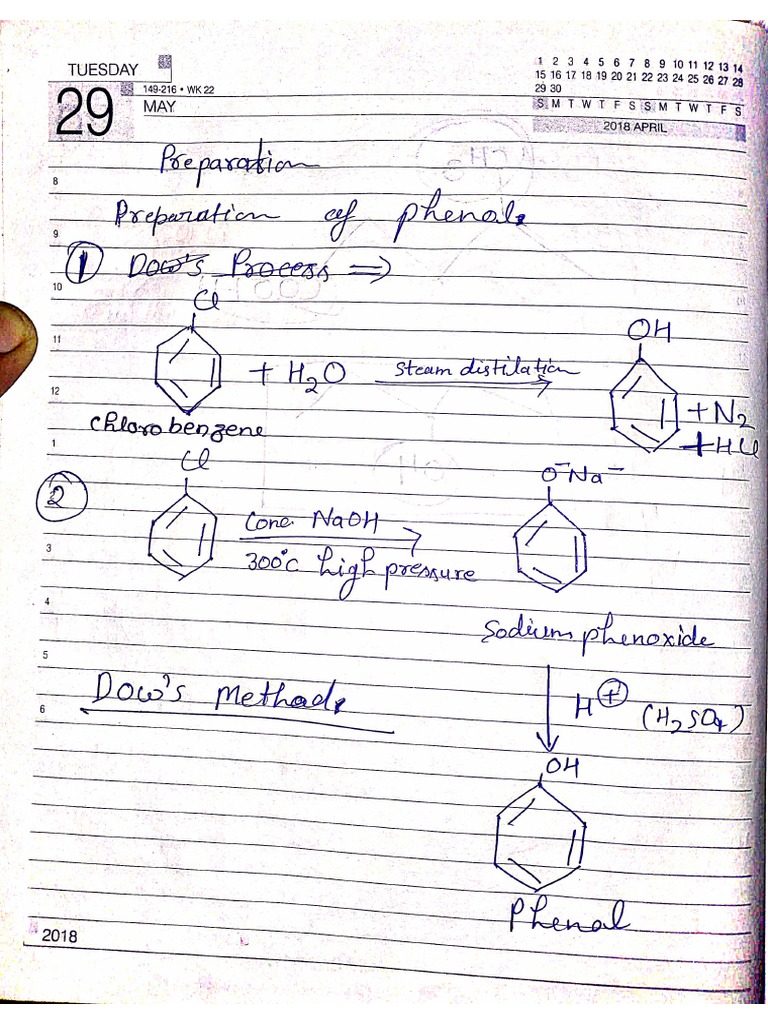 TUESDAY
29
149-216 • WK 22
MAY
1 2 3 4 5 6 7 8 9 10 11 12 13 14
15 16 17 18 19 20 21 22 23 24 25 26 27 28
29 30
S M T W T F S S M T W T F S
2018 APRIL
Preparation
8
Preparation of phenol.
9
1 Dow's Process ⇒
10
Cl
OH
11
+ H2O
steam distilation
+ N2
12
+ HCl
chlorobenzene
1
Cl
O⁻Na⁻
2
Conc NaOH
3
300°C high pressure
4
Sodium phenoxide
5
Dow's Method.
H⊕ (H2SO4)
6
OH
Phenol
2018